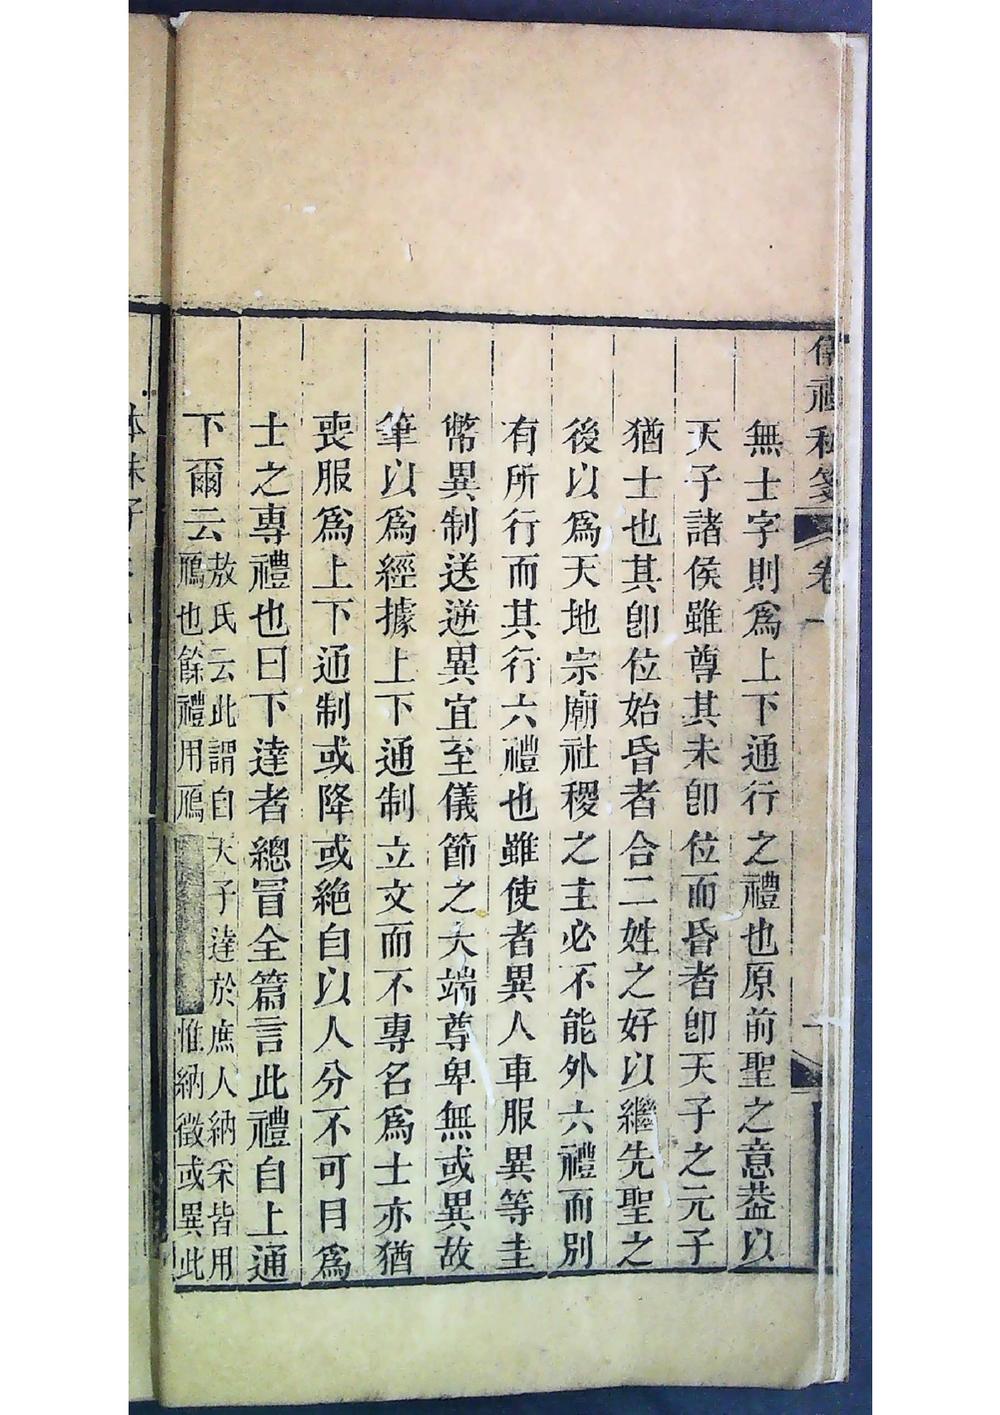 儀禮私箋 卷一
無士字則爲上下通行之禮也原前聖之意葢以
天子諸侯雖尊其未卽位而昏者卽天子之元子
猶士也其卽位始昏者合二姓之好以繼先聖之
後以爲天地宗廟社稷之主必不能外六禮而別
有所行而其行六禮也雖使者異人車服異等圭
幣異制送逆異宜至儀節之大端尊卑無或異故
筆以爲經據上下通制立文而不專名爲士亦猶
喪服爲上下通制或降或絶自以人分不可目爲
士之專禮也曰下達者總冒全篇言此禮自上通
下爾云
敖氏云此謂自天子達於庶人納采皆用
鴈也餘禮用鴈惟納徵或異此